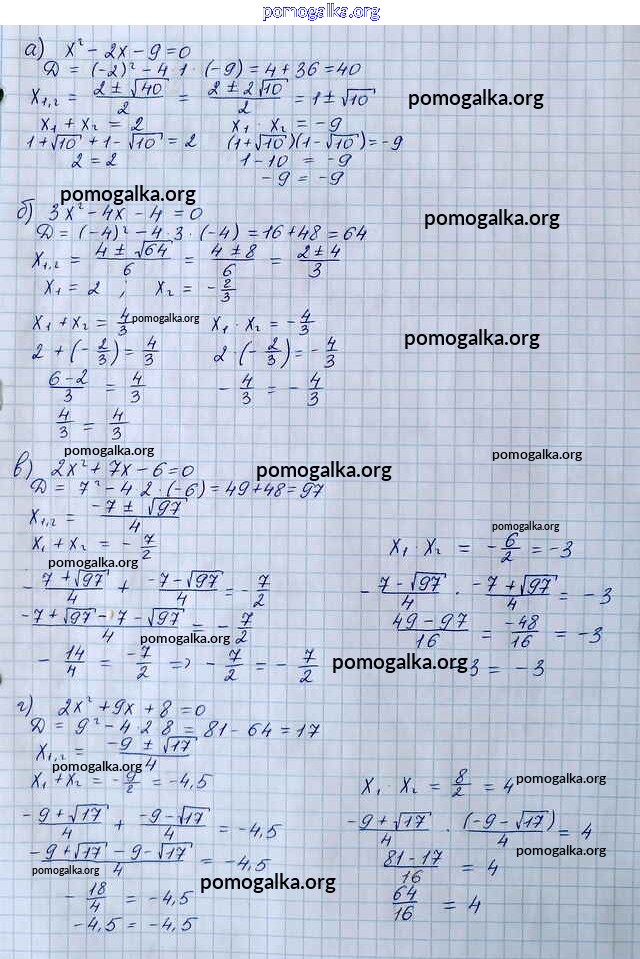 pomogalka.org
а) x² - 2x - 9 = 0
D = (-2)² - 4 · 1 · (-9) = 4 + 36 = 40
x₁,₂ = (2 ± √40)/2 = (2 ± 2√10)/2 = 1 ± √10
pomogalka.org
x₁ + x₂ = 2    x₁ · x₂ = -9
1 + √10 + 1 - √10 = 2    (1 + √10)(1 - √10) = -9
2 = 2    1 - 10 = -9
-9 = -9
pomogalka.org
б) 3x² - 4x - 4 = 0
pomogalka.org
D = (-4)² - 4 · 3 · (-4) = 16 + 48 = 64
x₁,₂ = (4 ± √64)/6 = (4 ± 8)/6 = (2 ± 4)/3
x₁ = 2 ; x₂ = -2/3
x₁ + x₂ = 4/3 pomogalka.org x₁ · x₂ = -4/3
pomogalka.org
2 + (-2/3) = 4/3    2 · (-2/3) = -4/3
(6 - 2)/3 = 4/3    -4/3 = -4/3
4/3 = 4/3
pomogalka.org
pomogalka.org
в) 2x² + 7x - 6 = 0
pomogalka.org
D = 7² - 4 · 2 · (-6) = 49 + 48 = 97
x₁,₂ = (-7 ± √97)/4
pomogalka.org
x₁ + x₂ = -7/2    x₁ · x₂ = -6/2 = -3
pomogalka.org
(-7 + √97)/4 + (-7 - √97)/4 = -7/2    (-7 - √97)/4 · (-7 + √97)/4 = -3
(-7 + √97 - 7 - √97)/4 = -7/2    (49 - 97)/16 = -48/16 = -3
pomogalka.org
-14/4 = -7/2 => -7/2 = -7/2 pomogalka.org -3 = -3
г) 2x² + 9x + 8 = 0
D = 9² - 4 · 2 · 8 = 81 - 64 = 17
x₁,₂ = (-9 ± √17)/4
pomogalka.org
x₁ + x₂ = -9/2 = -4,5    x₁ · x₂ = 8/2 = 4
pomogalka.org
(-9 + √17)/4 + (-9 - √17)/4 = -4,5    (-9 + √17)/4 · (-9 - √17)/4 = 4
pomogalka.org
(-9 + √17 - 9 - √17)/4 = -4,5    (81 - 17)/16 = 4
pomogalka.org
pomogalka.org
-18/4 = -4,5    64/16 = 4
-4,5 = -4,5